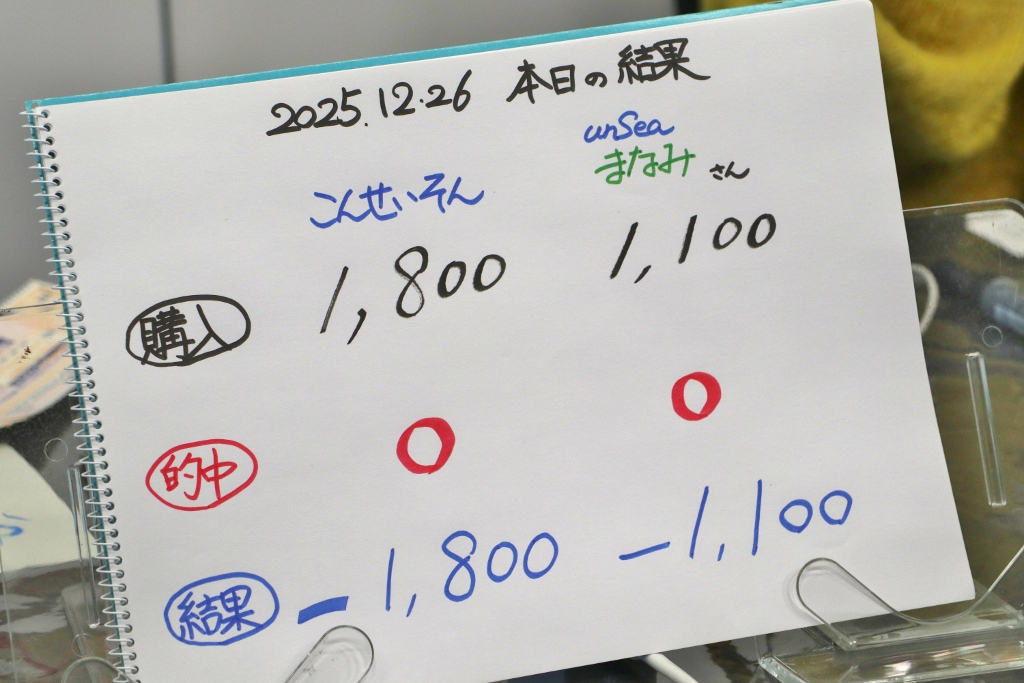 2025.12.26 本日の結果
unSea
こんせいそん まなみ さん
購入 1,800 1,100
的中 0 0
結果 -1,800 -1,100